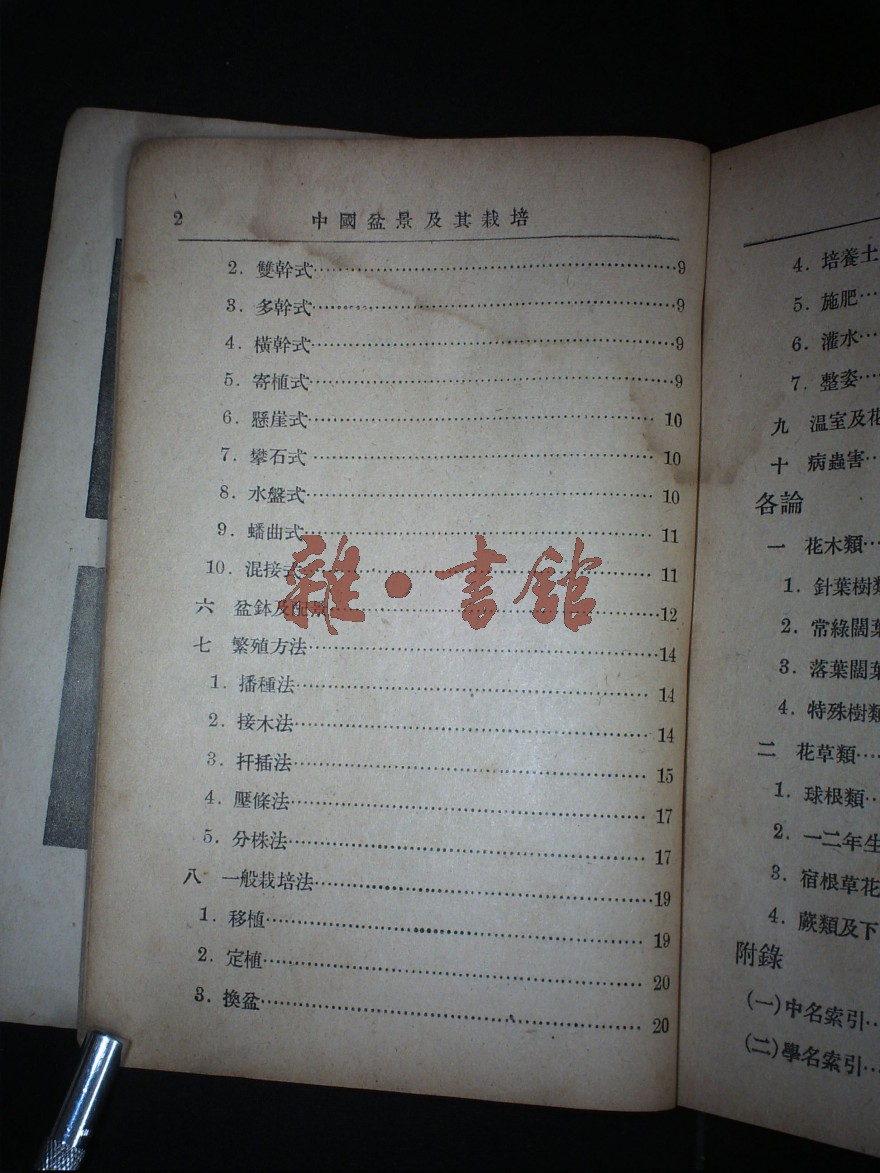 2 中國盆景及其栽培
2. 雙幹式……9
3. 多幹式……9
4. 橫幹式……9
5. 寄植式……9
6. 懸崖式……10
7. 攀石式……10
8. 水盤式……10
9. 蟠曲式……11
10. 混接式……11
六 盆鉢及配景……12
七 繁殖方法……14
1. 播種法……14
2. 接木法……14
3. 扦插法……15
4. 壓條法……17
5. 分株法……17
八 一般栽培法……19
1. 移植……19
2. 定植……20
3. 換盆……20
雜·書館
4. 培養土
5. 施肥…
6. 灌水…
7. 整姿…
九 温室及花
十 病蟲害…
各論
一 花木類…
1. 針葉樹類
2. 常綠闊葉
3. 落葉闊葉
4. 特殊樹類
二 花草類…
1. 球根類…
2. 一二年生
3. 宿根草花
4. 蕨類及下
附錄
(一)中名索引…
(二)學名索引…